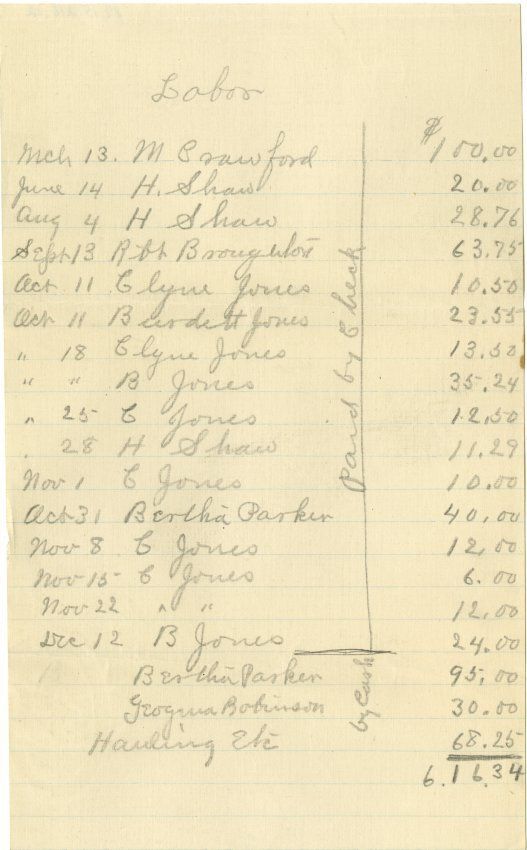 Labor
Mch 13. M Crawford $100.00
June 14 H. Shaw 20.00
Aug 4 H Shaw 28.76
Sept 13 Rbt Broughton 63.75
Oct 11 Clyne Jones 10.50
Oct 11 Burdett Jones 23.55
" 18 Clyne Jones 13.50
" " B Jones 35.24
" 25 C Jones 12.50
. 28 H Shaw 11.29
Nov 1 C Jones 10.00
Oct 31 Bertha Parker 40.00
Nov 8 C Jones 12.00
Nov 15 C Jones 6.00
Nov 22 " " 12.00
Dec 12 B Jones 24.00
Paid by Check
Bertha Parker 95.00
Geogina Robinson 30.00
Hauling Etc 68.25
by Cash
616.34